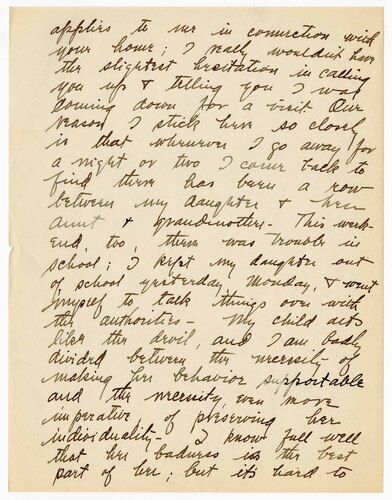 applies to me in connection with
your home; I really wouldn't have
the slightest hesitation in calling
you up & telling you I was
coming down for a visit. One
reason I stick here so closely
is that whenever I go away for
a night or two I come back to
find there has been a row
between my daughter & her
aunt & grandmother - This week-
end, too, there was trouble in
school; I kept my daughter out
of school yesterday, Monday, & went
myself to talk things over with
the authorities - My child acts
like the devil, and I am badly
divided between the necessity of
making her behavior supportable
and the necessity, even more
imperative, of preserving her
individuality - I know full well
that her badness is the best
part of her; but it's hard to